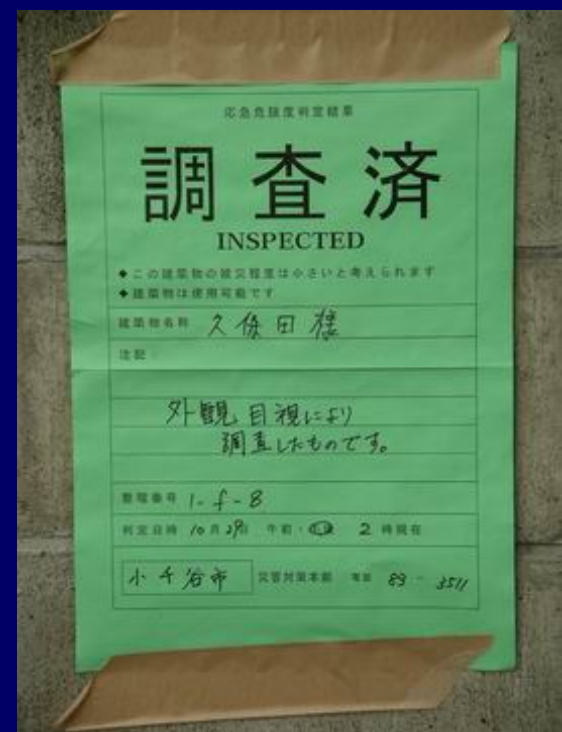 応急危険度判定結果
調査済
INSPECTED
◆この建築物の被災程度は小さいと考えられます
◆建築物は使用可能です
建築物名称 久保田様
注記:
外観目視により
調査したものです。
整理番号 1-f-8
判定日時 10月29日 午前・午後 2時現在
小千谷市 災害対策本部 電話 83-3511